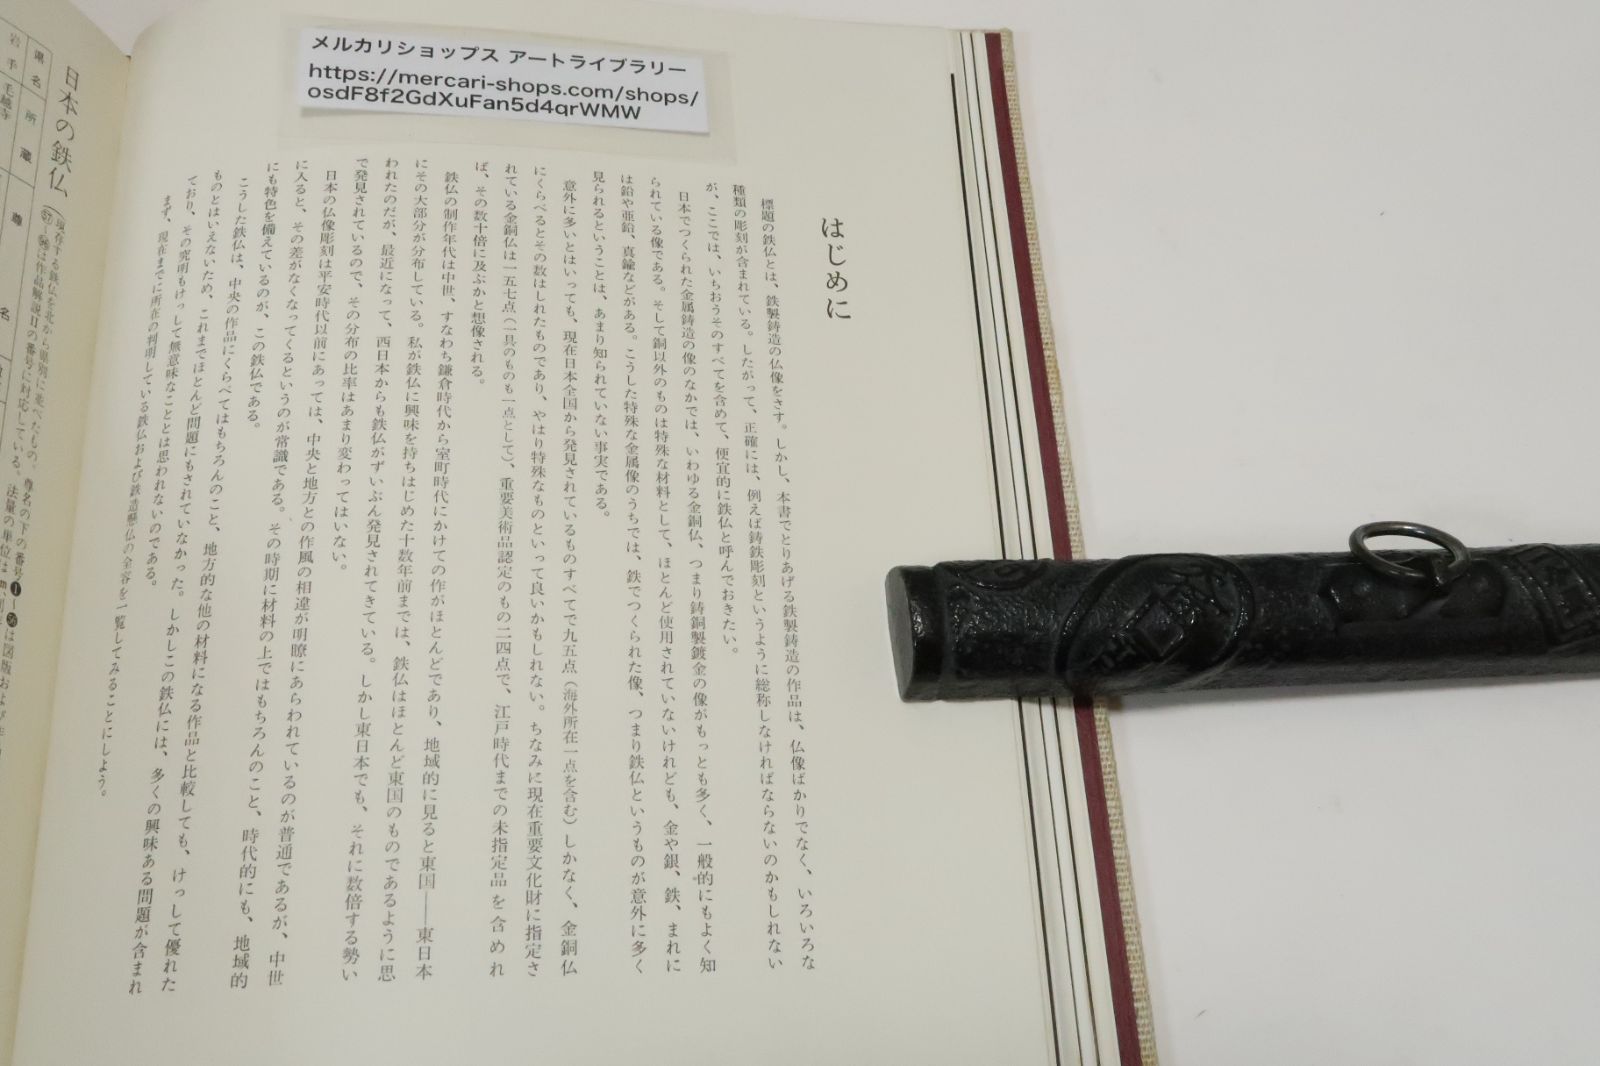 メルカリショップス アートライブラリー
https://mercari-shops.com/shops/
osdF8f2GdXuFan5d4qrWMW
はじめに
標題の鉄仏とは、鉄製鋳造の仏像をさす。しかし、本書でとりあげる鉄製鋳造の作品は、仏像ばかりでなく、いろいろな
種類の彫刻が含まれている。したがって、正確には、例えば鋳鉄彫刻というように総称しなければならないのかもしれない
が、ここでは、いちおうそのすべてを含めて、便宜的に鉄仏と呼んでおきたい。
日本でつくられた金属鋳造の像のなかでは、いわゆる金銅仏、つまり鋳銅製鍍金の像がもっとも多く、一般的にもよく知
られている像である。そして銅以外のものは特殊な材料として、ほとんど使用されていないけれども、金や銀、鉄、まれに
は鉛や亜鉛、真鍮などがある。こうした特殊な金属像のうちでは、鉄でつくられた像、つまり鉄仏というものが意外に多く
見られるということは、あまり知られていない事実である。
意外に多いとはいっても、現在日本全国から発見されているものすべてで九五点（海外所在一点を含む）しかなく、金銅仏
にくらべるとその数はしれたものであり、やはり特殊なものといって良いかもしれない。ちなみに現在重要文化財に指定さ
れている金銅仏は一五七点（一具のものも一点として）、重要美術品認定のもの二四点で、江戸時代までの未指定品を含めれ
ば、その数十倍に及ぶかと想像される。
鉄仏の制作年代は中世、すなわち鎌倉時代から室町時代にかけての作がほとんどであり、地域的に見ると東国――東日本
にその大部分が分布している。私が鉄仏に興味を持ちはじめた十数年前までは、鉄仏はほとんど東国のものであるように思
われたのだが、最近になって、西日本からも鉄仏がずいぶん発見されてきている。しかし東日本でも、それに数倍する勢い
で発見されているので、その分布の比率はあまり変わってはいない。
日本の仏像彫刻は平安時代以前にあっては、中央と地方との作風の相違が明瞭にあらわれているのが普通であるが、中世
に入ると、その差がなくなってくるというのが常識である。その時期に材料の上ではもちろんのこと、時代的にも、地域的
にも特色を備えているのが、この鉄仏である。
こうした鉄仏は、中央の作品にくらべてはもちろんのこと、地方的な他の材料になる作品と比較しても、けっして優れた
ものとはいえないため、これまでほとんど問題にもされていなかった。しかしこの鉄仏には、多くの興味ある問題が含まれ
ており、その究明もけっして無意味なこととは思われないのである。
まず、現在までに所在の判明している鉄仏および鉄造懸仏の全容を一覧してみることにしよう。
日本の鉄仏
現存する鉄仏を北から県別に並べたもの。尊名の下の番号
は作品解説Ⅱの番号に対応している。法量の単位は
県名 所蔵 尊名
岩手 毛越寺